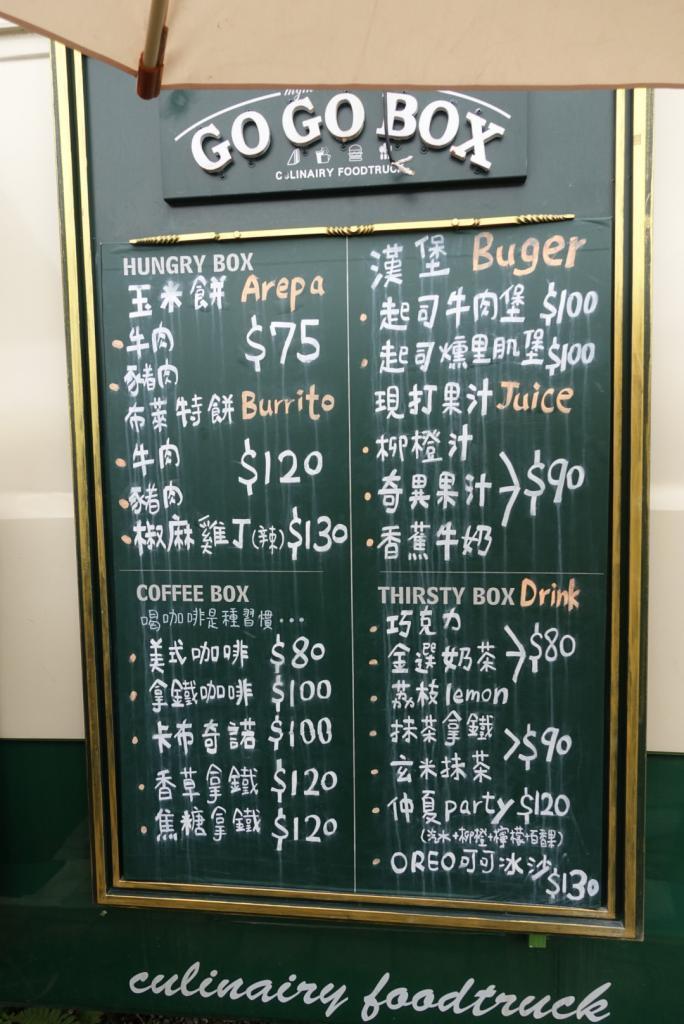 GO GO BOX
CULINAIRY FOODTRUCK
HUNGRY BOX
玉米餅 Arepa
牛肉
$75
豬肉
布萊特餅 Burrito
牛肉
$120
豬肉
椒麻雞丁(辣) $130
漢堡 Buger
起司牛肉堡 $100
起司燻里肌堡 $100
現打果汁 Juice
柳橙汁
奇異果汁 >$90
香蕉牛奶
COFFEE BOX
喝咖啡是種習慣...
美式咖啡 $80
拿鐵咖啡 $100
卡布奇諾 $100
香草拿鐵 $120
焦糖拿鐵 $120
THIRSTY BOX Drink
巧克力
金選奶茶 >$80
荔枝lemon
抹茶拿鐵
>$90
玄米抹茶
仲夏party $120
(汽水+柳橙+檸檬+百香果)
OREO可可冰沙
$130
culinairy foodtruck